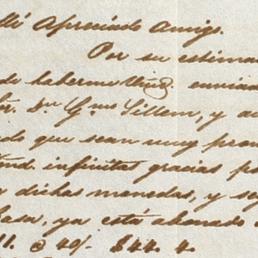 Apreciado Amigo.
Por su estima
de haberme Vmd. enviad
Dn. Gmo. Sillem, y a
do que sean muy pron
infinitas gracias po
dichas monedas, y se
ya está abonado
11. @ 40/- $44. 4.